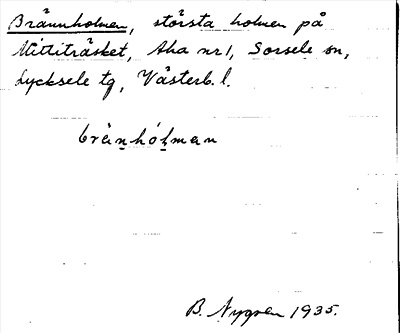 Brännholmen, största holmen på
Mittiträsket, Aha nr 1, Sorsele sn,
Lycksele tg, Västerb. l.
brä̀nhólman
B. Nygren 1935.